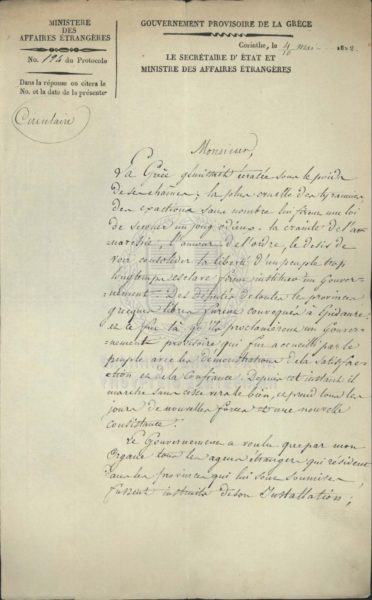 MINISTERE
DES
AFFAIRES ÉTRANGÈRES
No. 124 du Protocole
Dans la réponse on citera le
No. et la date de la présente
Circulaire
GOUVERNEMENT PROVISOIRE DE LA GRÈCE
Corinthe, le 4/16 mai 1822.
LE SECRÉTAIRE D'ÉTAT ET
MINISTRE DES AFFAIRES ÉTRANGÈRES
Monsieur,
La Grèce gémissait écrasée sous le poids
de ses chaines; la plus cruelle des tyrannies
des exactions sans nombre lui firent une loi
de secouer un joug odieux. la crainte de l'an-
narchie, l'amour de l'ordre, le désir de
voir consolider la liberté d'un peuple trop
longtemps esclave firent instituer un Gouver-
nement. Des députés de toutes les provinces
grecques libres furent convoqués à Epidaure;
et ce fut là qu'ils proclamèrent un Gouver-
nement provisoire qui fut accueilli par le
peuple avec les démonstrations de la satisfac-
ction et de la confiance. Depuis cet instant il
marche sans cesse vers le bien, et prend tous les
jours de nouvelles forces et une nouvelle
consistance.
Le Gouvernement a voulu que par mon
Organe tous les agens étrangers qui résident
dans les provinces qui lui sont soumises,
fussent instruits de son Installation;